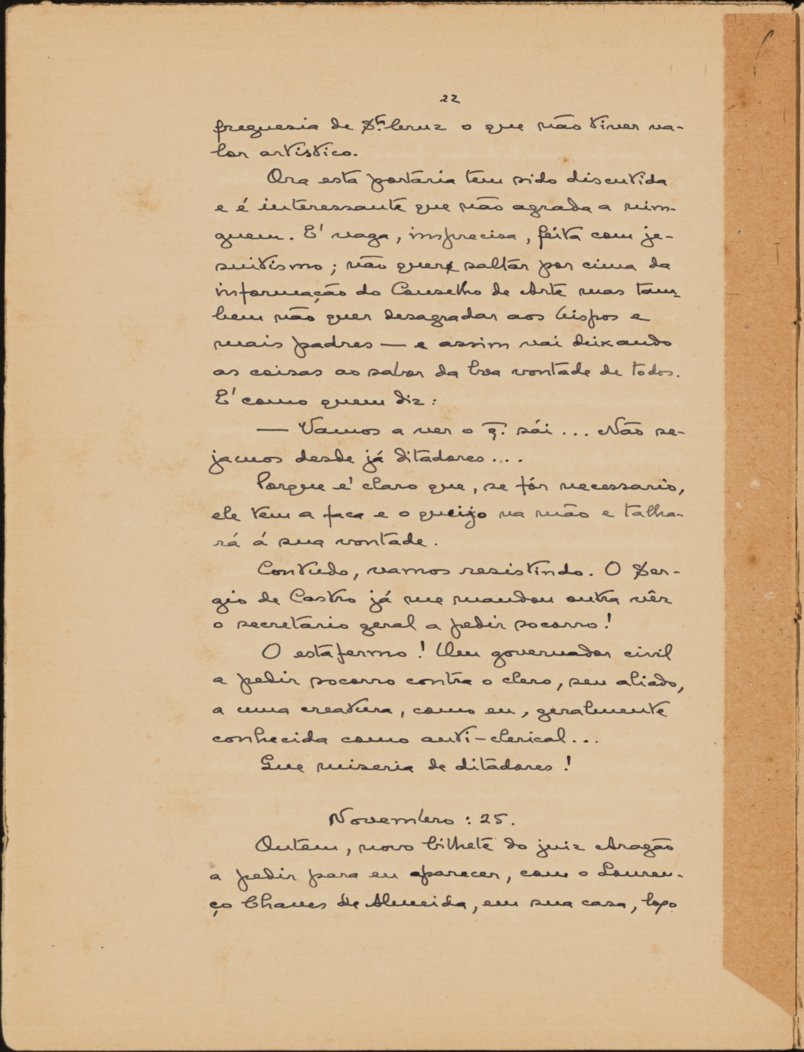 22
freguesia de Stª. Cruz o que não tiver va-
lor artistico.
Ora esta portaria tem sido discutida
e é interessante que não agrada a nim-
guem. E' vaga, imprecisa, feita com je-
suitismo; não quer saltar por cima da
informação do Conselho de Arte mas tam-
bem não quer desagradar aos bispos e
mais padres — e assim vai deixando
as coisas ao sabor da boa vontade de todos.
E' como quem diz:
— Vamos a ver o q̃. sái... Não se-
jamos desde já ditadores...
Porque é claro que, se fôr necessario,
ele tem a faca e o queijo na mão e talha-
rá á sua vontade.
Contudo, vamos resistindo. O Ser-
gio de Castro já me mandou outra vêr
o secretario geral a pedir socorro!
O estafermo! Um governador civil
a pedir socorro contra o clero, seu aliado,
a uma creatura, como eu, geralmente
conhecida como anti-clerical...
Que miseria de ditadores!
Novembro: 25.
Ontem, novo bilhete do juiz Aragão
a pedir para eu aparecer, com o Louren-
ço Chaves de Almeida, em sua casa, logo